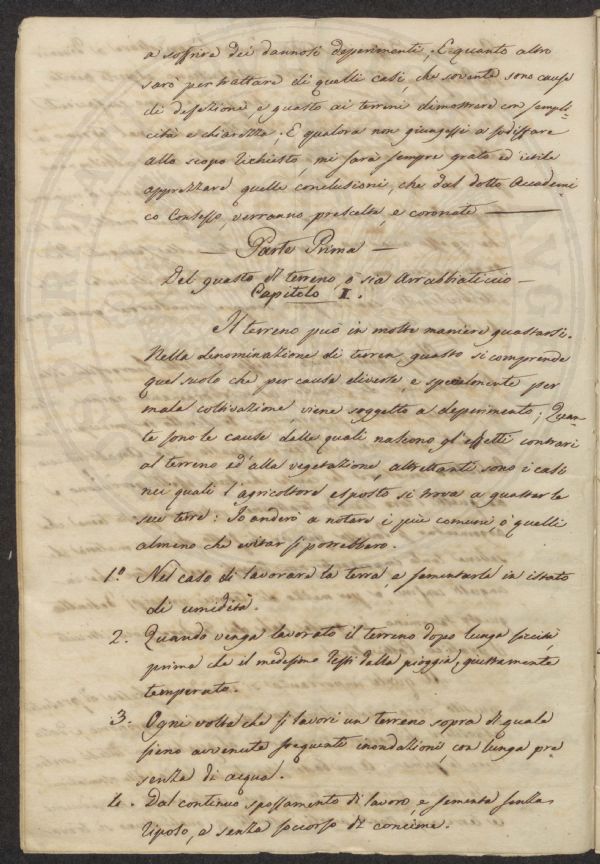 a soffrire dei dannosi deperimenti, E quanto altro
sarò per trattare di quelli casi, che sovente sono causa
di defezione, e guasto ai terreni dimostrare con sempli-
cità e chiarezza, E qualora non giungessi a sodisfare
allo scopo richiesto, mi sarà sempre grato ed utile
apprezzare quelle conclusioni, che dal dotto Accademi-
co Consesso, verranno prescelte, e coronate
— Parte Prima —
Del guasto di terreno, o sia Arrabbiaticcio —
Capitolo I.
Il terreno può in molte maniere guastarsi.
Nella denominazione di terren guasto si comprende
quel suolo che per cause diverse e specialmente per
mala coltivazione, viene soggetto a deperimento; Quan-
te sono le cause dalle quali nascono gl'effetti contrari
al terreno ed alla vegetazione, altrettanti sono i casi
nei quali l'agricoltore esposto si trova a guastar le
sue terre: Io anderò a notare i più comuni, o quelli
almeno che evitar si potrebbero.
1.º Nel caso di lavorare la terra, e sementarla in istato
di umidità.
2. Quando venga lavorato il terreno dopo lunga siccità
prima che il medesimo resti dalla pioggia, giustamente
temperato.
3. Ogni volta che si lavori un terreno sopra di quale
sieno avvenute frequenti inondazioni, con lunga pre
senza di acqua.
4. Dal continuo spossamento di lavoro, e sementa senza
riposo, e senza soccorso di concime.